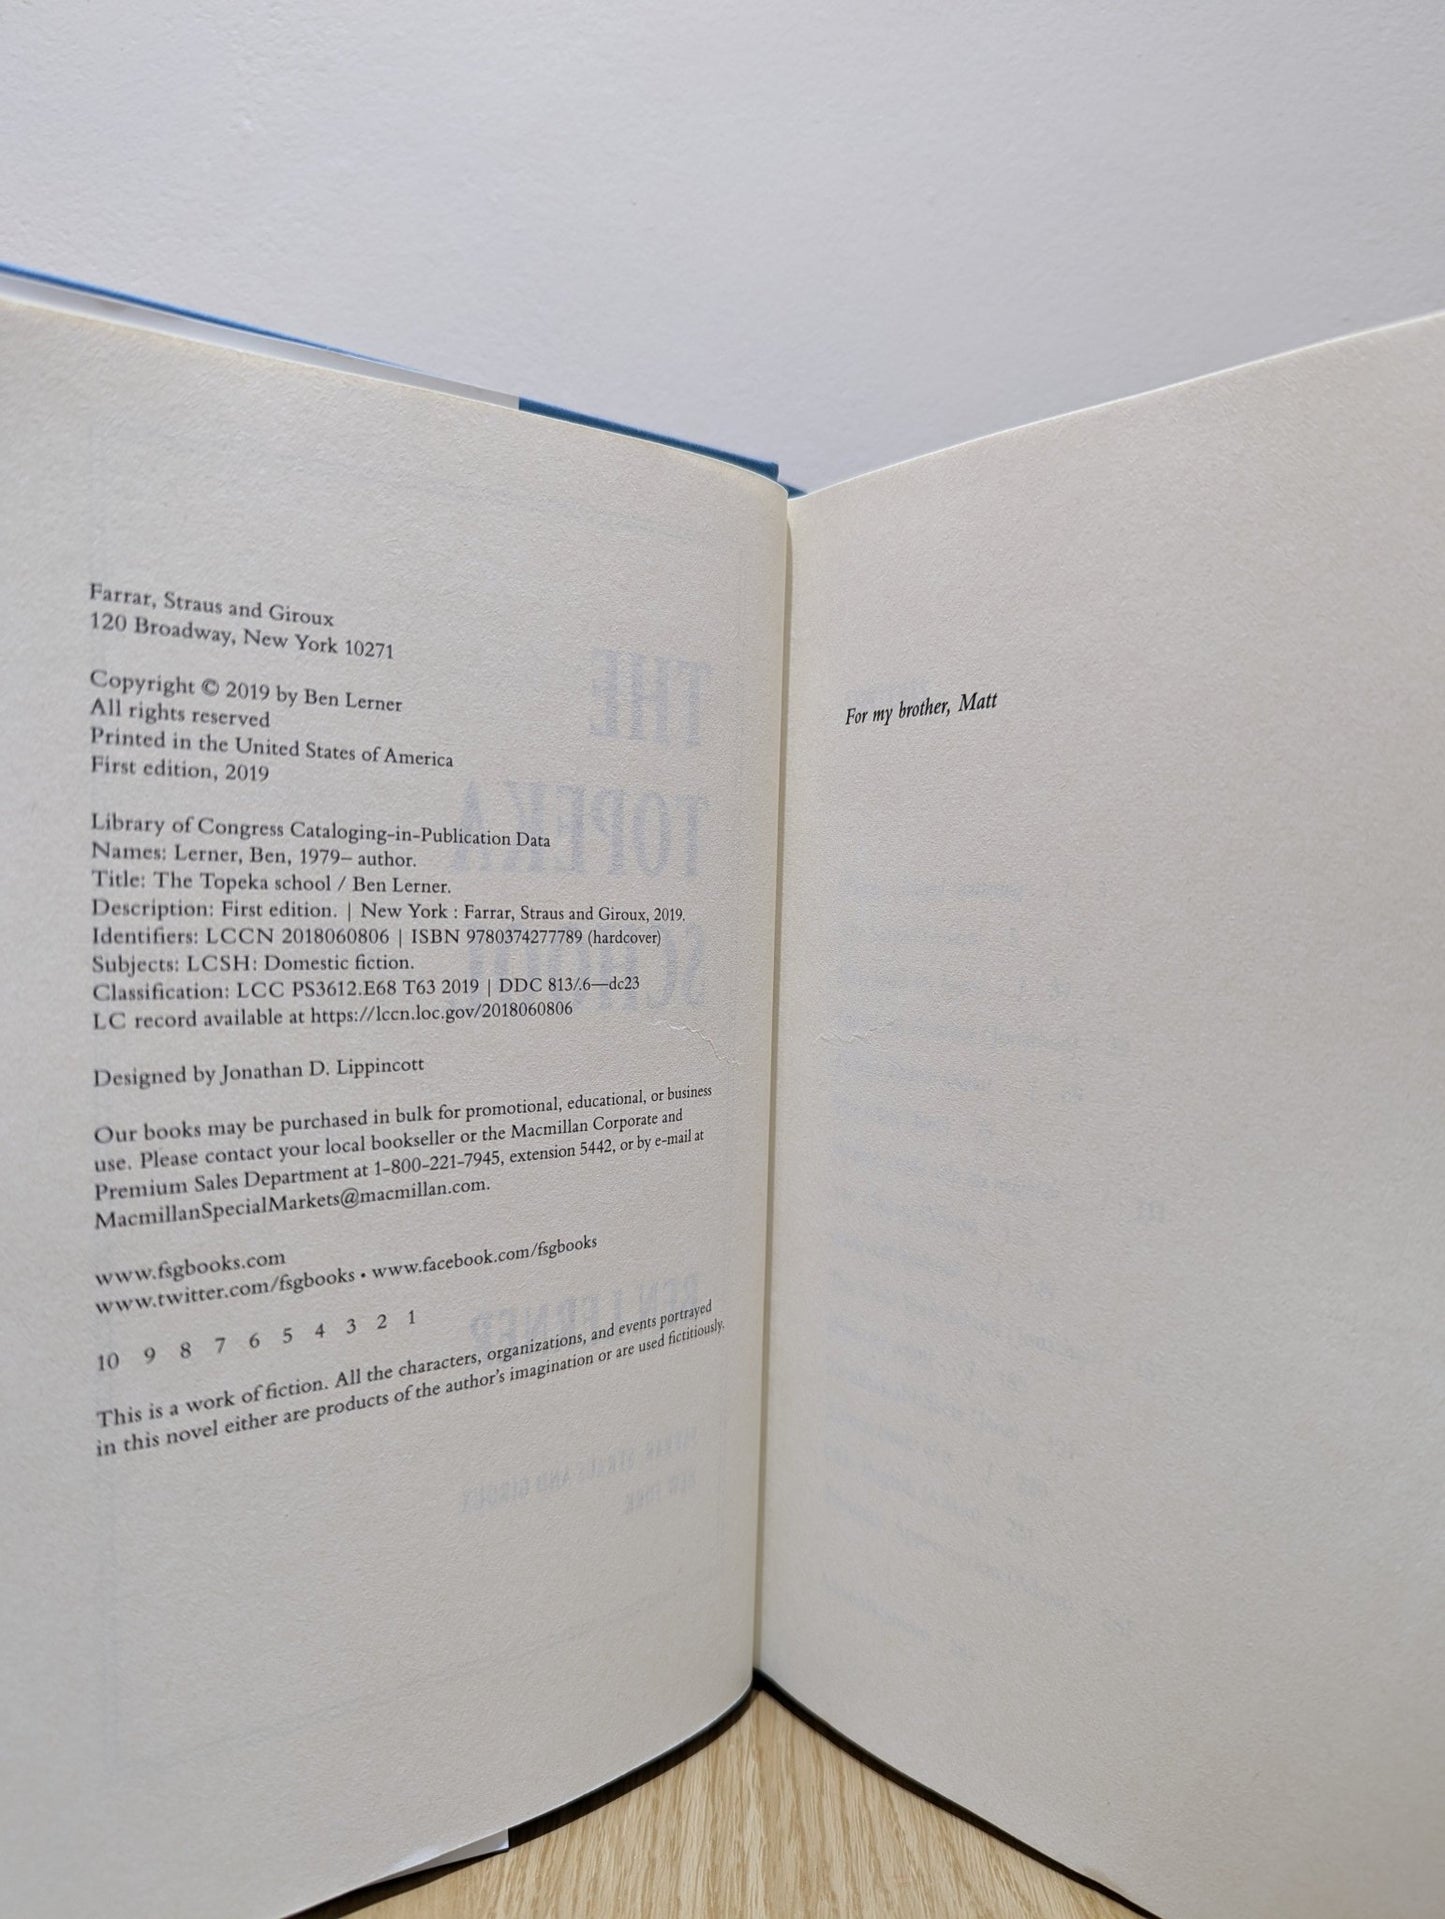 Farrar, Straus and Giroux
120 Broadway, New York 10271
Copyright © 2019 by Ben Lerner
All rights reserved
Printed in the United States of America
First edition, 2019
Library of Congress Cataloging-in-Publication Data
Names: Lerner, Ben, 1979– author.
Title: The Topeka school / Ben Lerner.
Description: First edition. | New York : Farrar, Straus and Giroux, 2019.
Identifiers: LCCN 2018060806 | ISBN 9780374277789 (hardcover)
Subjects: LCSH: Domestic fiction.
Classification: LCC PS3612.E68 T63 2019 | DDC 813/.6—dc23
LC record available at https://lccn.loc.gov/2018060806
Designed by Jonathan D. Lippincott
Our books may be purchased in bulk for promotional, educational, or business
use. Please contact your local bookseller or the Macmillan Corporate and
Premium Sales Department at 1-800-221-7945, extension 5442, or by e-mail at
MacmillanSpecialMarkets@macmillan.com.
www.fsgbooks.com
www.twitter.com/fsgbooks • www.facebook.com/fsgbooks
10 9 8 7 6 5 4 3 2 1
This is a work of fiction. All the characters, organizations, and events portrayed
in this novel either are products of the author's imagination or are used fictitiously.
THE
TOPEKA
SCHOOL
BEN LERNER
FARRAR, STRAUS AND GIROUX
NEW YORK
For my brother, Matt